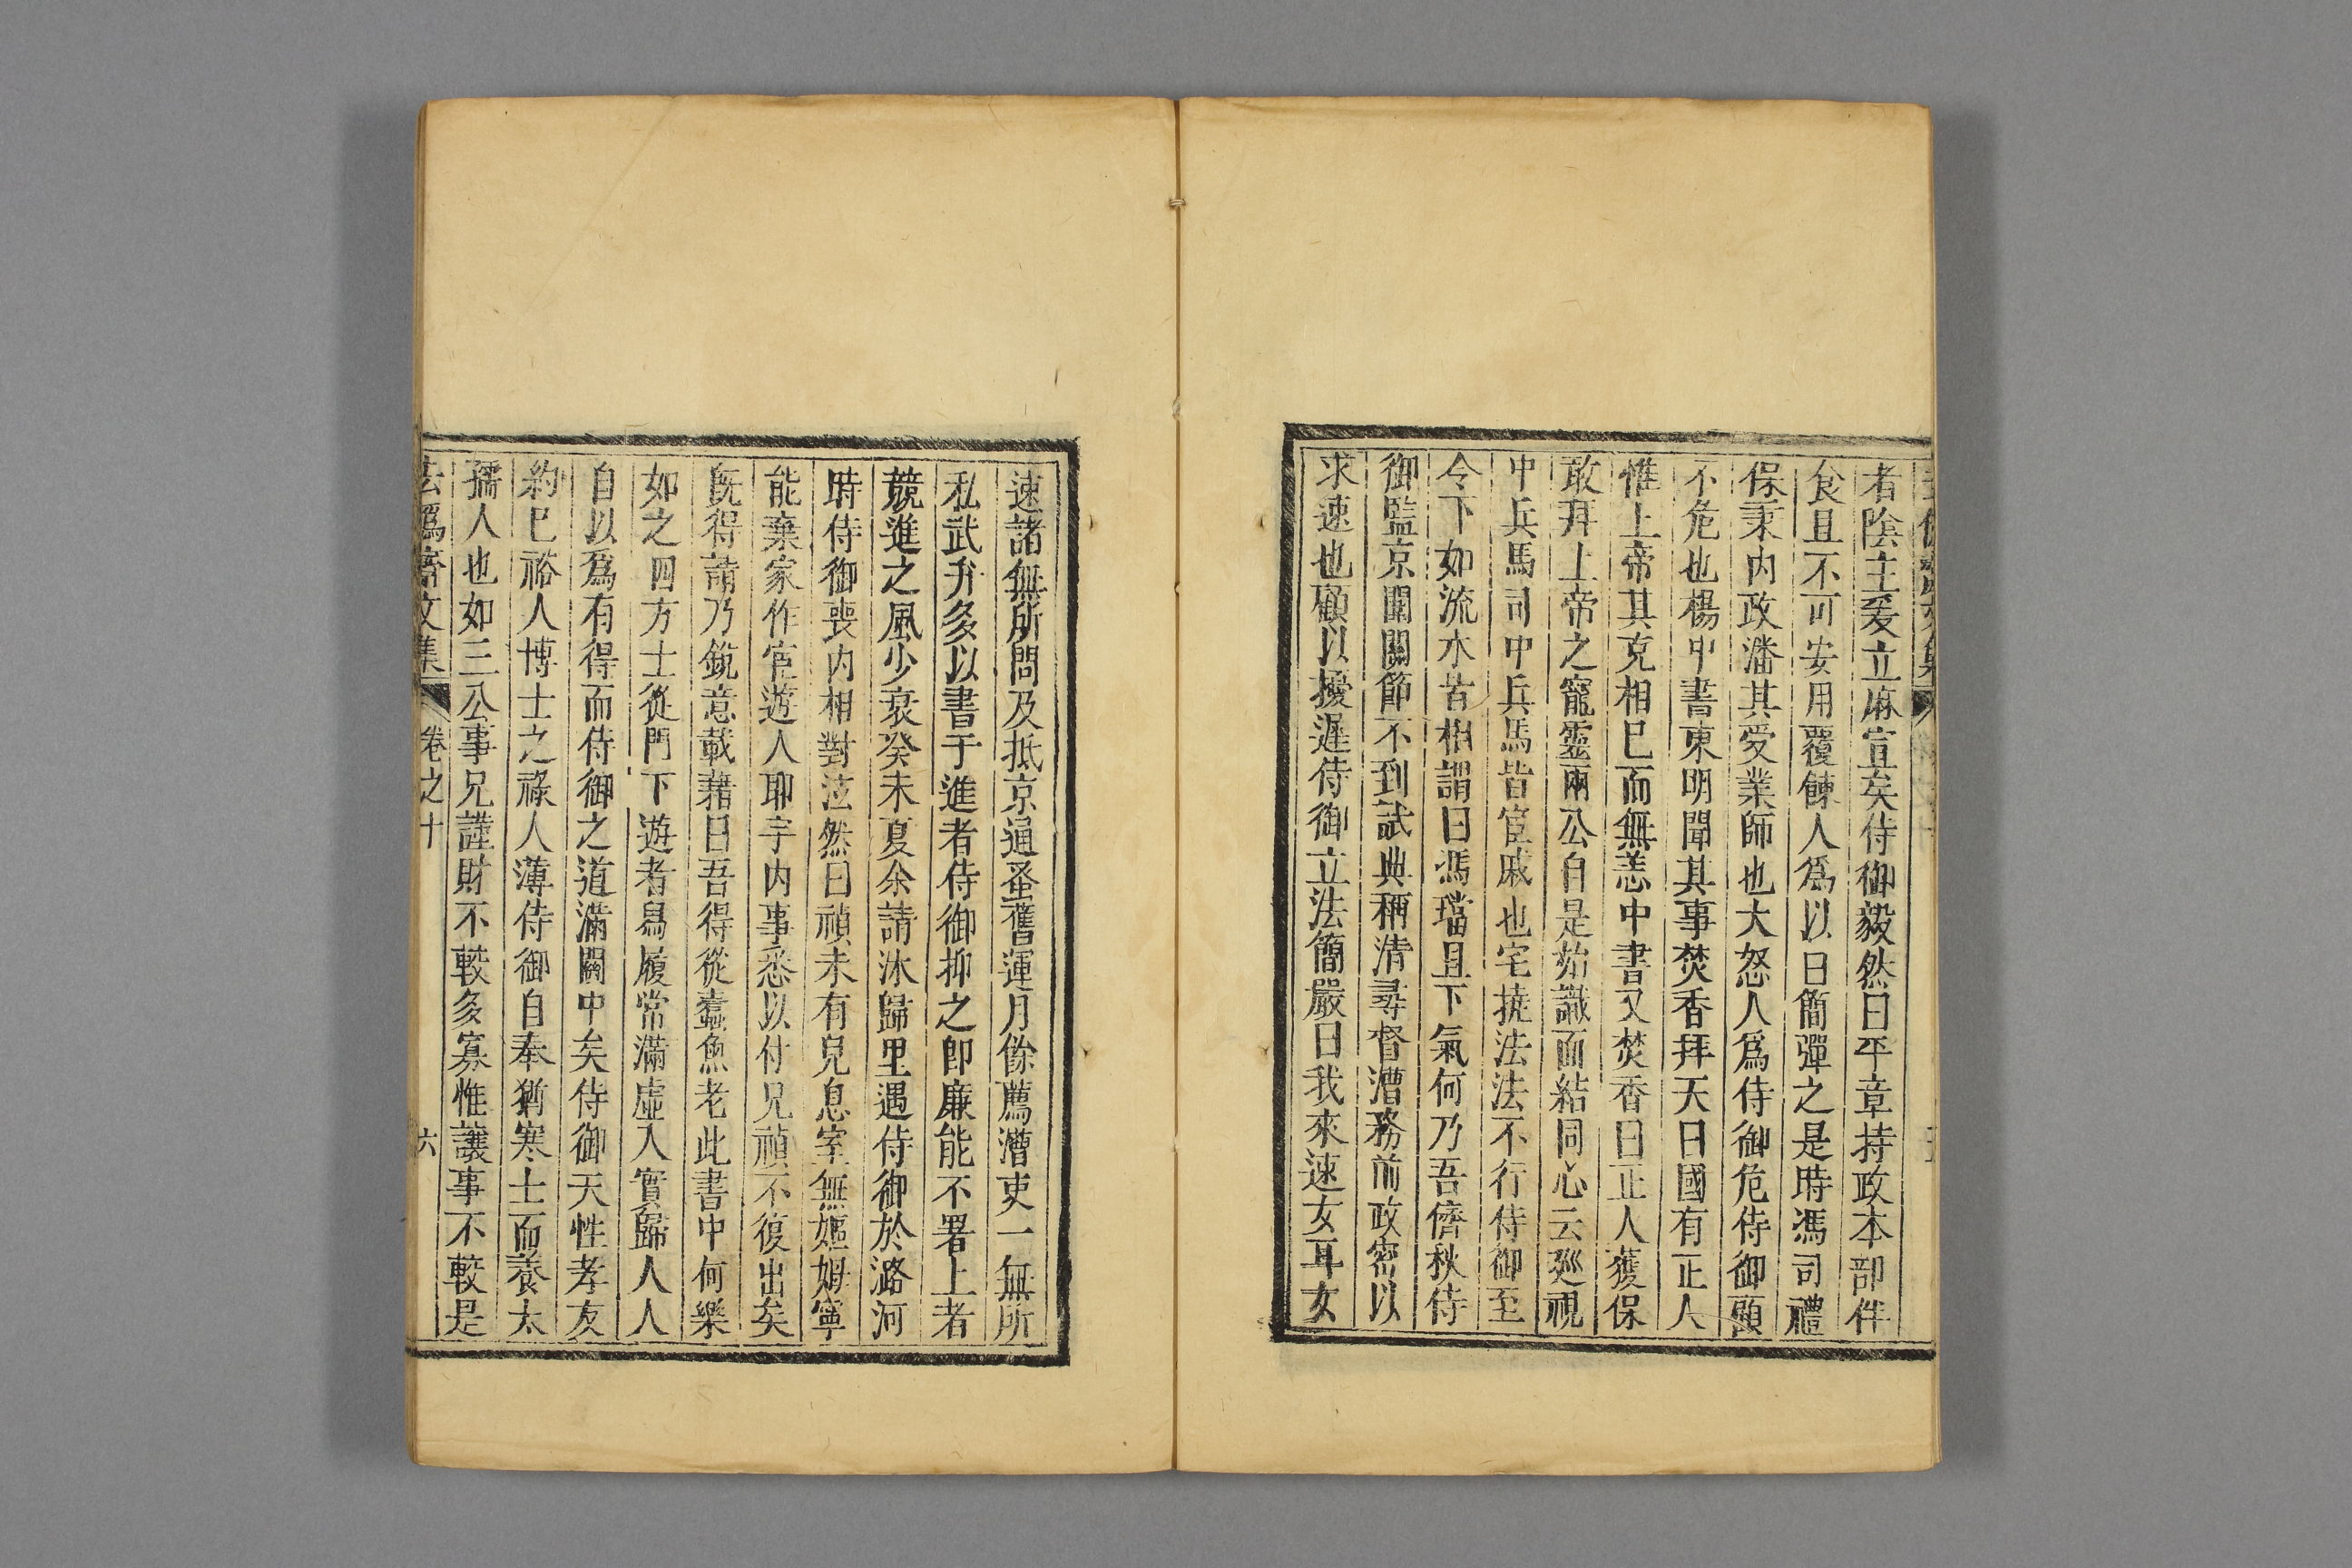 者陰主爰立麻宣矣侍御毅然曰平章持政本部伴
食且不可安用覆餗人爲以白簡彈之是時馮司禮
保秉内政潘其爱業師也大怒人爲侍御危侍御顧
不危也楊中書東明聞其事焚香拜天曰國有正人
惟上帝其克相巳而無恙中書又焚香曰正人獲保
敢拜上帝之寵靈兩公自是始識面結同心云廵視
中兵馬司中兵馬皆宦戚也宅撓法法不行侍御至
令下如流水皆相謂曰馮璫且下氣何乃吾儕秋侍
御監京闈關節不到試典稱清尋督漕務前政密以
求速也顧以擾遲侍御立法簡嚴曰我來速女耳女
速諸無所問及抵京通蚤舊運月餘薦漕吏一無所
私武弁多以書于進者侍御抑之即廉能不署上者
競進之風少衰癸未夏余請沐歸里遇侍御於潞河
時侍御喪内相對泣然曰禎未有兒息室無嫗姆寧
能棄家作宦遊人耶宇内事悉以付兄禎不復出矣
既得請乃銳意載藉曰吾得從蠹魚老此書中何樂
如之四方士從門下遊者舄履常滿虛入實歸人人
自以爲有得而侍御之道滿關中矣侍御天性孝友
約巳裕人博士之祿人薄侍御自奉猶寒士而養太
孺人也如三公事兄謹財不較多寡惟讓事不較是
去僞齋文集 卷之十 六